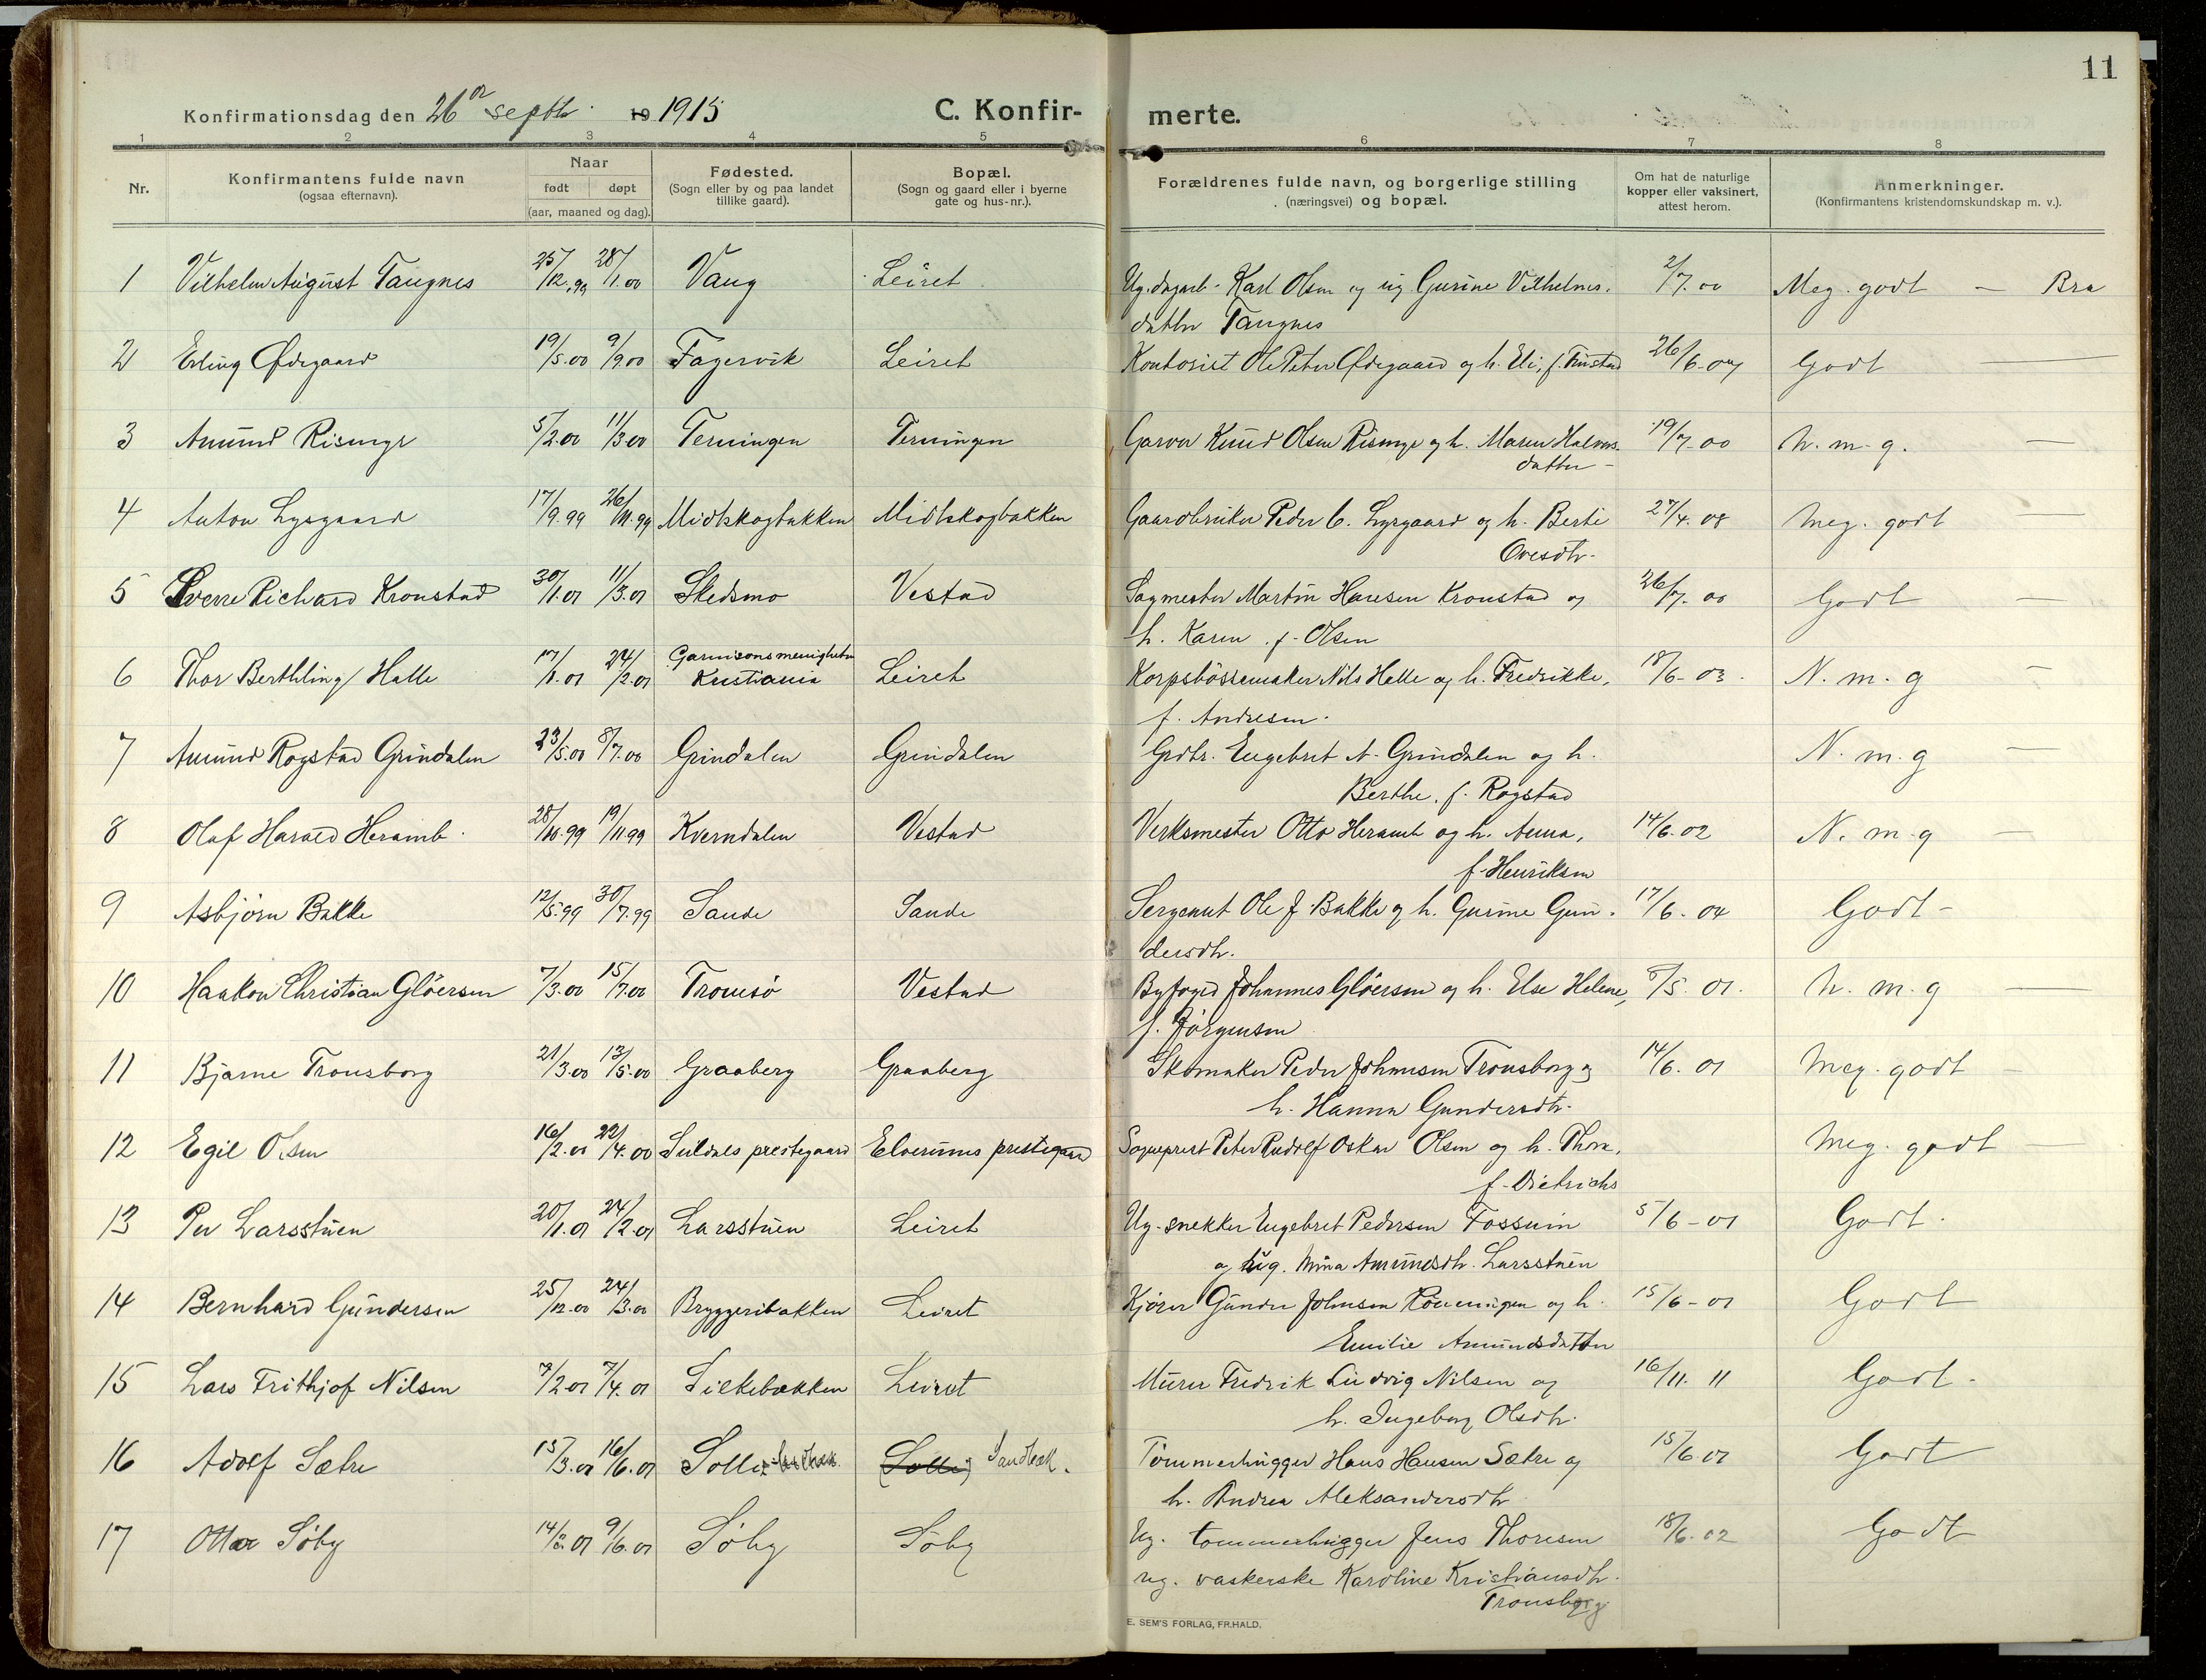 11
Konfirmationsdag den 26 septbr. 19 1915
C. Konfir-
merte.
1 2 3 4 5 6 7 8
Nr.
Konfirmantens fulde navn
(ogsaa efternavn).
Naar
født døpt
(aar, maaned og dag).
Fødested.
(Sogn eller by og paa landet
tillike gaard).
Bopæl.
(Sogn og gaard eller i byerne
gate og hus-nr.).
Forældrenes fulde navn, og borgerlige stilling
(næringsvei) og bopæl.
Om hat de naturlige
kopper eller vaksinert,
attest herom.
Anmerkninger.
(Konfirmantens kristendomskundskap m. v.).
1 Vilhelm August Tangnes 25/12.99 28/1.00 Vang Leiret Ug. dagarb. Karl Olsen og ug Gurine Vilhelms. 2/7.00 Meg. godt — Bra
datter Tangnes
2 Erling Ødegaard 19/5.00 9/9.00 Fagervik Leiret Kontorist Ole Peter Ødegaard og h. Eli, f. 26/6- Godt —
3 Amund Rismyr 5/2.00 11/3.00 Terningen Terningen Garver Knud Olsen Rismyr og h. Maren Halvors. 19/7-00 N. m. g. —
datter -
4 Anton Lysgaard 17/9.99 26/11.99 Midtskogbakken Midtskogbakken Gaardbruker Peder C. Lysgaard og h. Berte 27/4.08 Meg. godt —
Ovesdtr.
5 Sverre Richard Kronstad 30/1.01 11/3.01 Skedsmo Vestad Sagmester Martin Hansen Kronstad og 26/7.00 Godt —
h. Karen. f. Olsen
6 Thor Berthling Helle 17/1.01 24/2.01 Garnisonsmenigheten Kristiania Leiret Korpsbøssemaker Nils Helle og h. Fredrikke, 18/6-03. N. m. g —
f. Andresen.
7 Amund Rogstad Grindalen 23/5.00 8/7.00 Grindalen Grindalen Grdbr. Engebret A. Grindalen og h. N. m. g —
Berthe, f. Rogstad
8 Olaf Harald Heramb. 28/10.99 19/11.99 Kverndalen Vestad Verksmester Otto Heramb og h. Anna, 14/6.02 N. m. g —
f. Henriksen
9 Asbjørn Bakke 12/5.99 30/7.99 Sande Sande Sergeant Ole J. Bakke og h. Gurine Gun- 17/6.04 Godt —
dersdtr.
10 Haakon Christian Gløersen 7/3.00 15/7.00 Tromsø Vestad Byfoged Johannes Gløersen og h. Else Helene, 8/5.01. N. m. g —
f. Jørgensen
11 Bjarne Tronsborg 21/3.00 13/5.00 Graaberg Graaberg Skomaker Peder Johansen Tronsborg og 14/6.01 Meg. godt —
h. Hanna Gundersdtr.
12 Egil Olsen 16/2.00 22/4.00 Suldals prestegaard Elverums prestegaard Sogneprest Peter Rudolf Oskar Olsen og h. Thora, Meg. godt —
f. Dietrichs
13 Per Larsstuen 20/1.01 24/2.01 Larsstuen Leiret Ug. snekker Engebret Pedersen Fossum 5/6-01 Godt.
og ug. Mina Amundsdtr. Larsstuen
14 Bernhard Gundersen 25/12.00 24/3.00 Bryggeribakken Leiret Kjører Gunder Johnsen Rønningen og h. 15/6-01 Godt
Emilie Amundsdatter
15 Lars Frithjof Nilsen 7/2.01 7/4.01 Silkebækken Leiret Murer Fredrik Ludvig Nilsen og 16/11.11 Godt.
h. Ingeborg Olsdtr.
16 Adolf Sætre 15/3.01 16/6.01 Solli (Solli) Sandbæk. Tømmerhugger Hans Hansen Sætre og 15/6.01 Godt
h. Andrea Aleksandersdtr
17 Ottar Søby 14/3.01 9/6.01 Søby Søby Ug. tømmerhugger Jens Thoresen 18/6.02 Godt
ug. vaskerske Karoline Kristiansdtr.
Tronsborg
E. SEM'S FORLAG, FR.HALD.